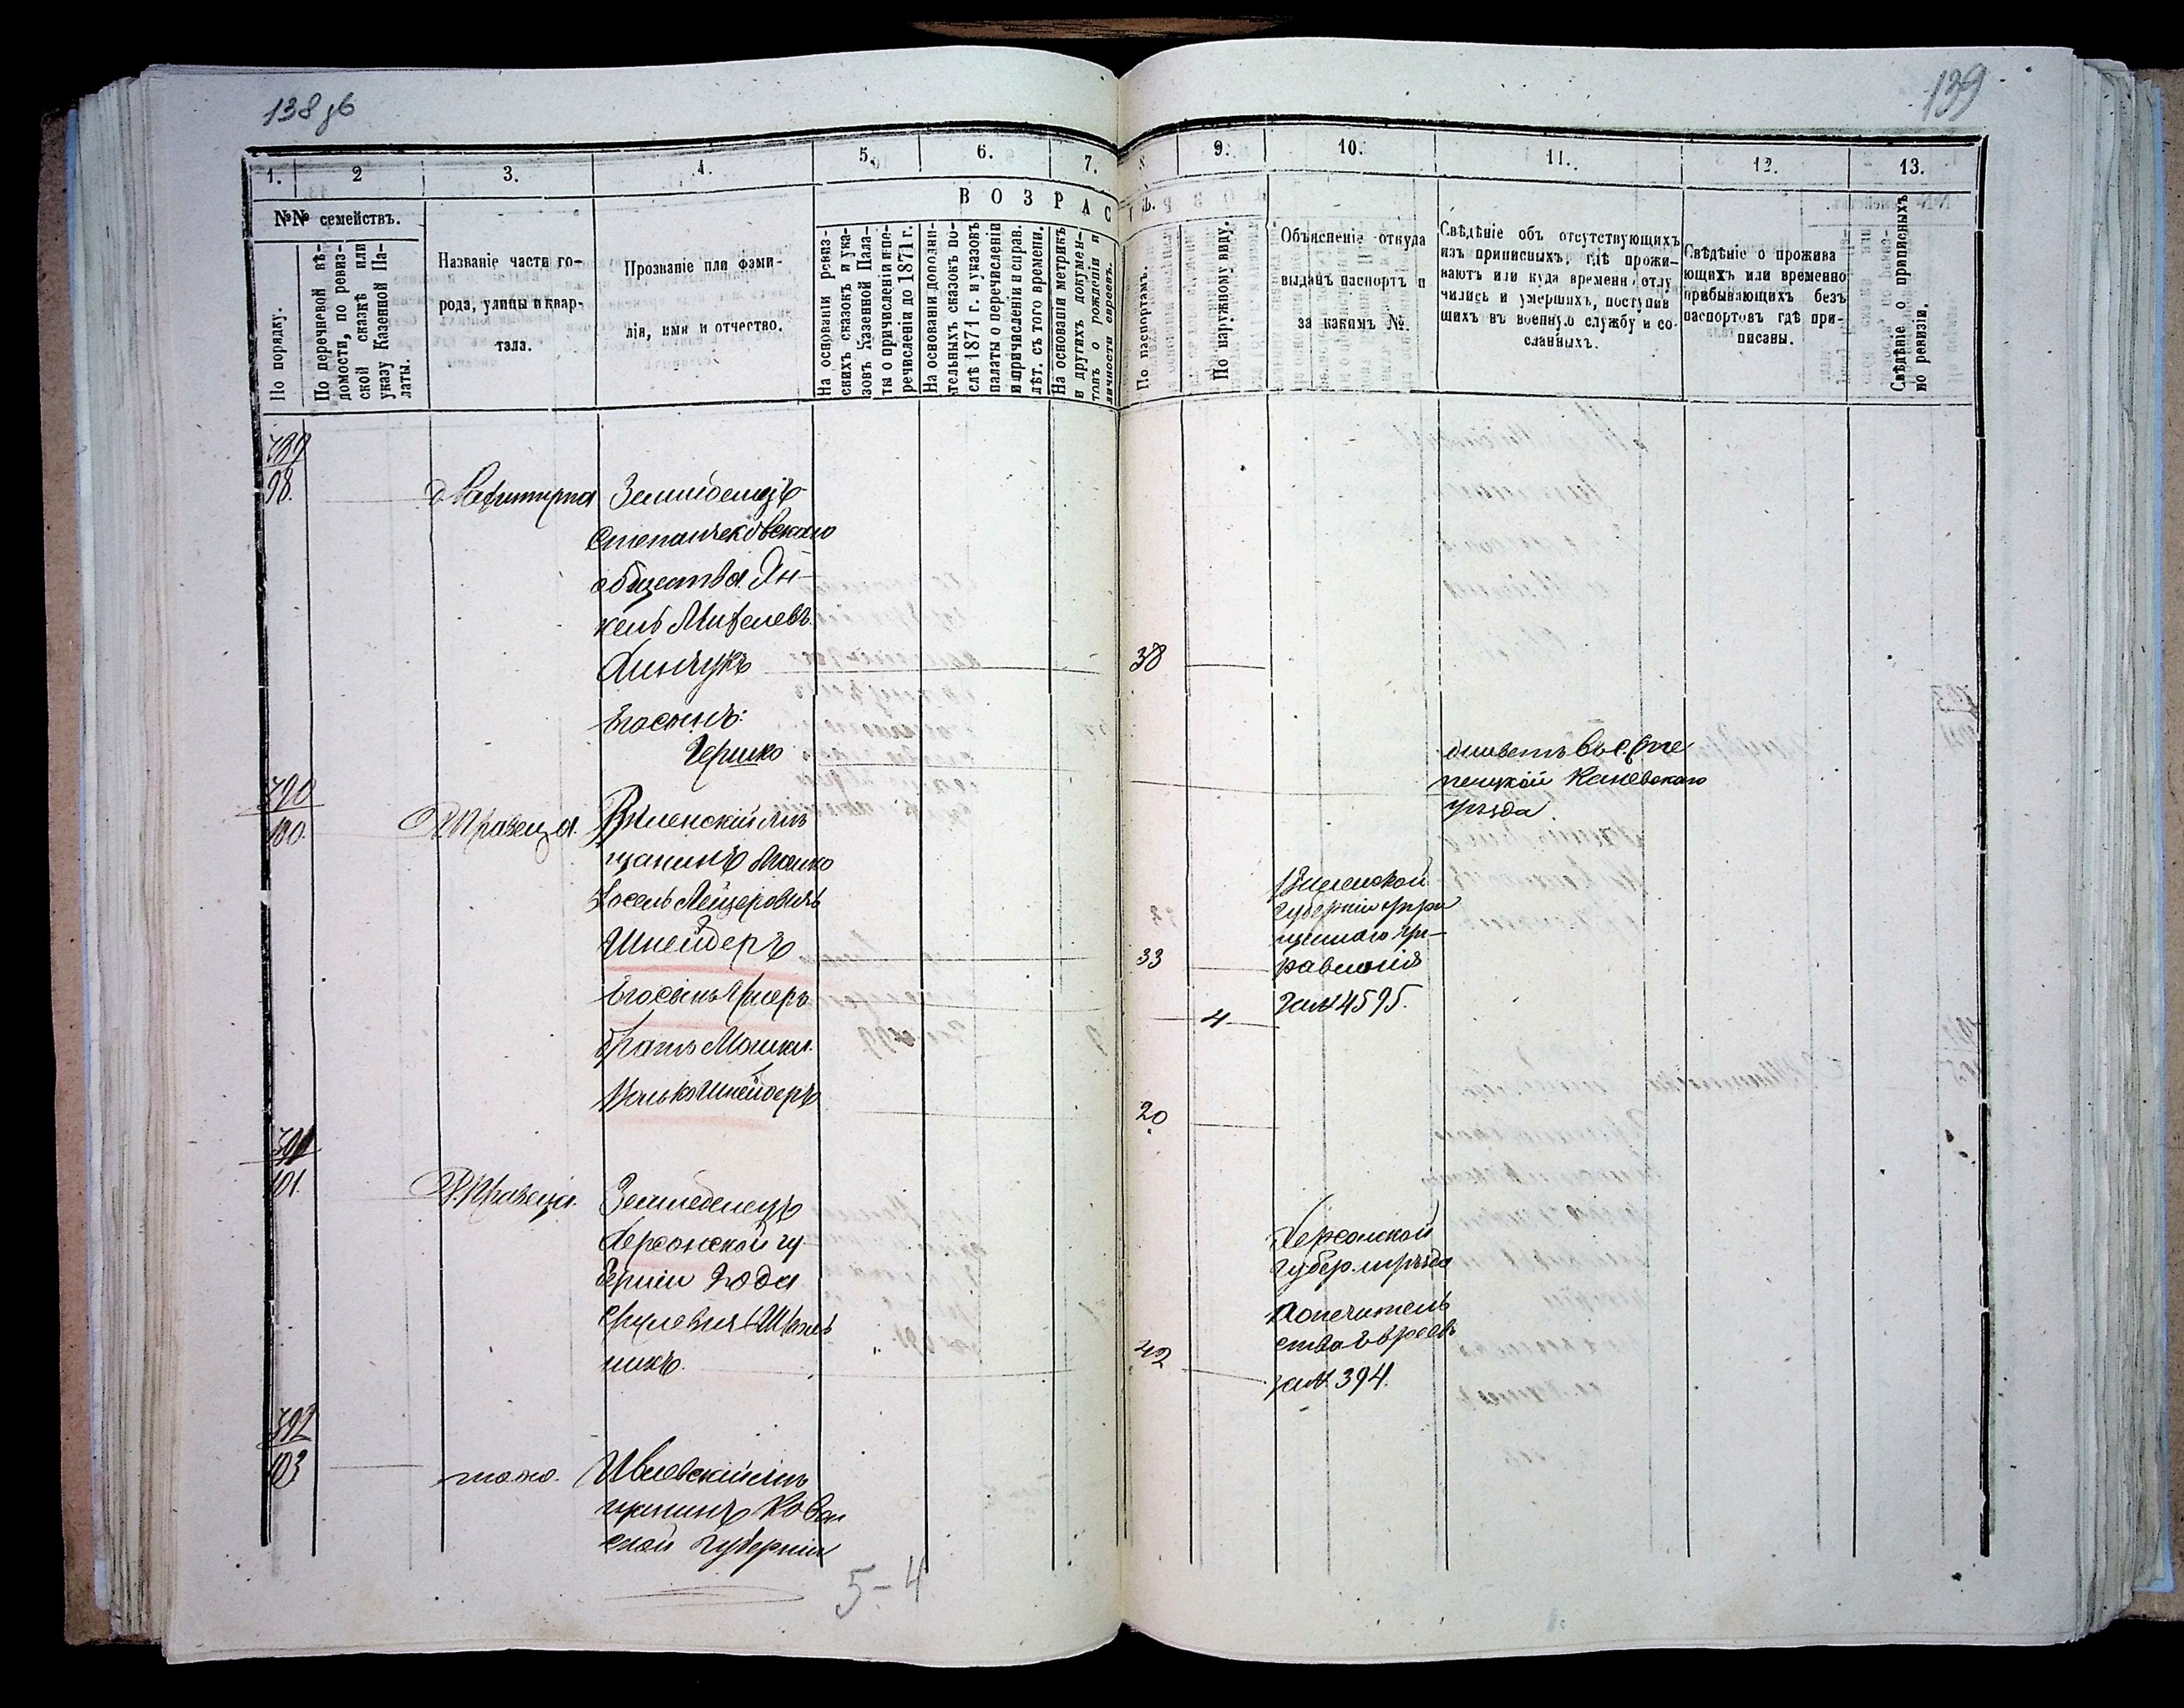 138 об
139
1.
2
3.
4.
5.
6.
7.
8.
9.
10.
11.
12.
13.
№№ семействъ.
ВОЗРАС
ТЪ.
По порядку.
По перечневой вѣ-
домости, по ревиз-
ской сказкѣ или
указу Казенной Па-
латы.
Названіе части го-
рода, улицы и квар-
тала.
Прозваніе или фами-
лія, имя и отчество.
На основаніи ревиз-
скихъ сказокъ и ука-
зовъ Казенной Пала-
ты о причисленіи и пе-
речисленіи до 1871 г.
На основаніи дополни-
тельныхъ сказокъ по-
слѣ 1871 г. и указовъ
палаты о перечисленіи
и причисленіи и справ.
лѣт. съ того времени.
На основаніи метрикъ
и другихъ докумен-
товъ о рожденіи и
личности евреевъ.
По паспортамъ.
По наружному виду.
Объясненіе откуда
выданъ паспортъ и
за какимъ №.
Свѣдѣніе объ отсутствующихъ
изъ приписныхъ, гдѣ прожи-
ваютъ или куда времени отлу
чились и умершихъ, поступив
шихъ въ военную службу и со-
сланныхъ.
Свѣдѣніе о прожива
ющихъ или временно
прибывающихъ безъ
паспортовъ гдѣ при-
писаны.
Свѣдѣніе о приписныхъ
по ревизіи.
389
98.
Земледелецъ
общества Ян-
кель
38
Его сынъ:
Гершко
живетъ въ с. Сте
пецкой Каневскаго
уѣзда
390
100.
Виленскій мѣ
щанинъ Мошко
Іосель Лейзеровичъ
Шнейдеръ
33
Виленской
губерніи
равленія
за № 4595.
Его сынъ
4
братъ Мошки
Шнейдеръ
20
391
101.
Земледелецъ
Херсонской гу-
берніи Юда
Срулевичъ
никъ.
42
Херсонской
губер. уѣзда
Попечитель
ства Евреевъ
за № 394.
392
103
тоже.
мѣ
щанинъ Ковен
ской губерніи
5-4